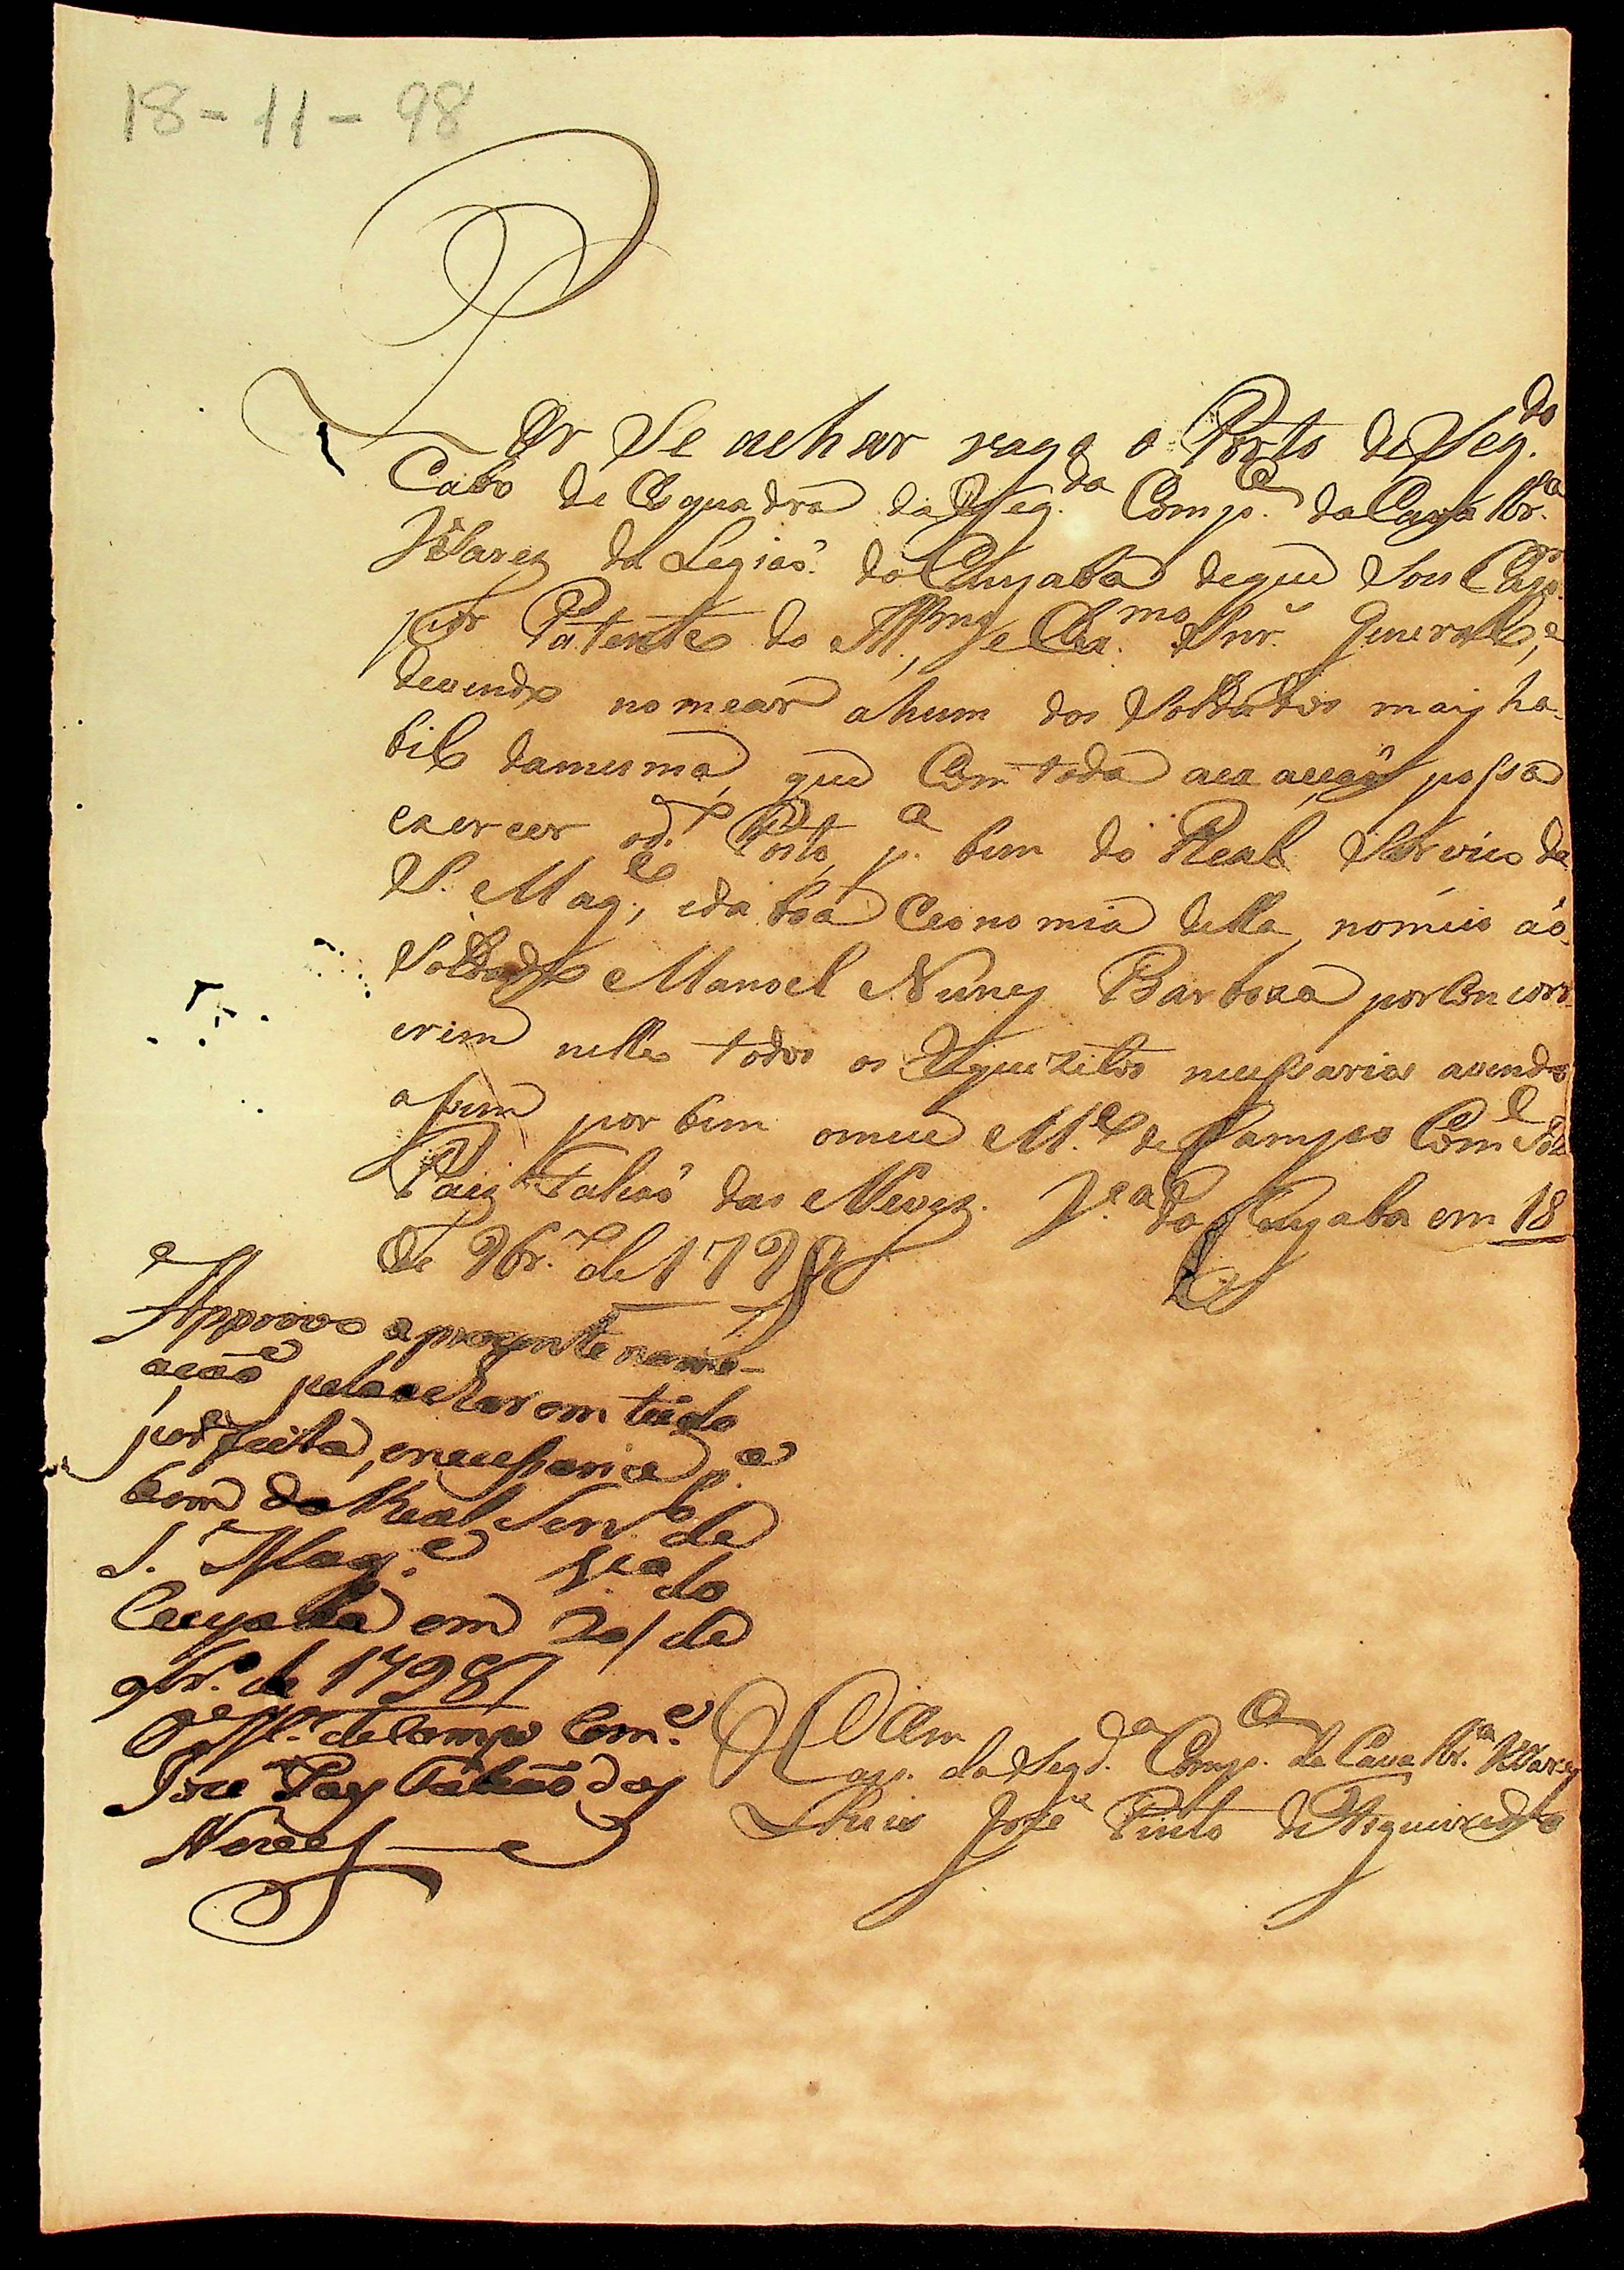 18-11-98
Por Se achar vago o Porto de Seg.do
Cabo de Esquadra da Seg.da Comp.a da Cavallr.a
da Legiaõ do Cuyabá de que Sou Cap.m
por Patente do Ill.mo, e Ex.mo Snr. General, e
devendo nomear a hum dos Soldados mais ha-
bil damesma, que Com toda aceaçaõ possa
exercer od.o Posto, p.a bem do Real Serviço de
S. Mag.e, eda boa Economia della, nomeio áo
Soldado Manoel Nunes Barboza por Concorr-
erem nelle todos os Requezitos necessarios avendo
assim por bem omeu M.e de Campo Com.e Joze
Paes Falcaõ das Neves. V.a do Cuyaba em 18
de 9br.o de 1798
Approvo a prezente nome-
açaõ pela achar em tudo
perfeita, enecessaria p.a
bem do Real Serv.o de
S. Mag.e V.a do
Cuyaba em 20 de
9br.o de 1798
O M.e de Campo Com.e
Joze Paes Falcaõ das
Neves
Cap.m da Segd.a Comp.a da Cavallr.a
Luis Joze Pinto de Figueiredo